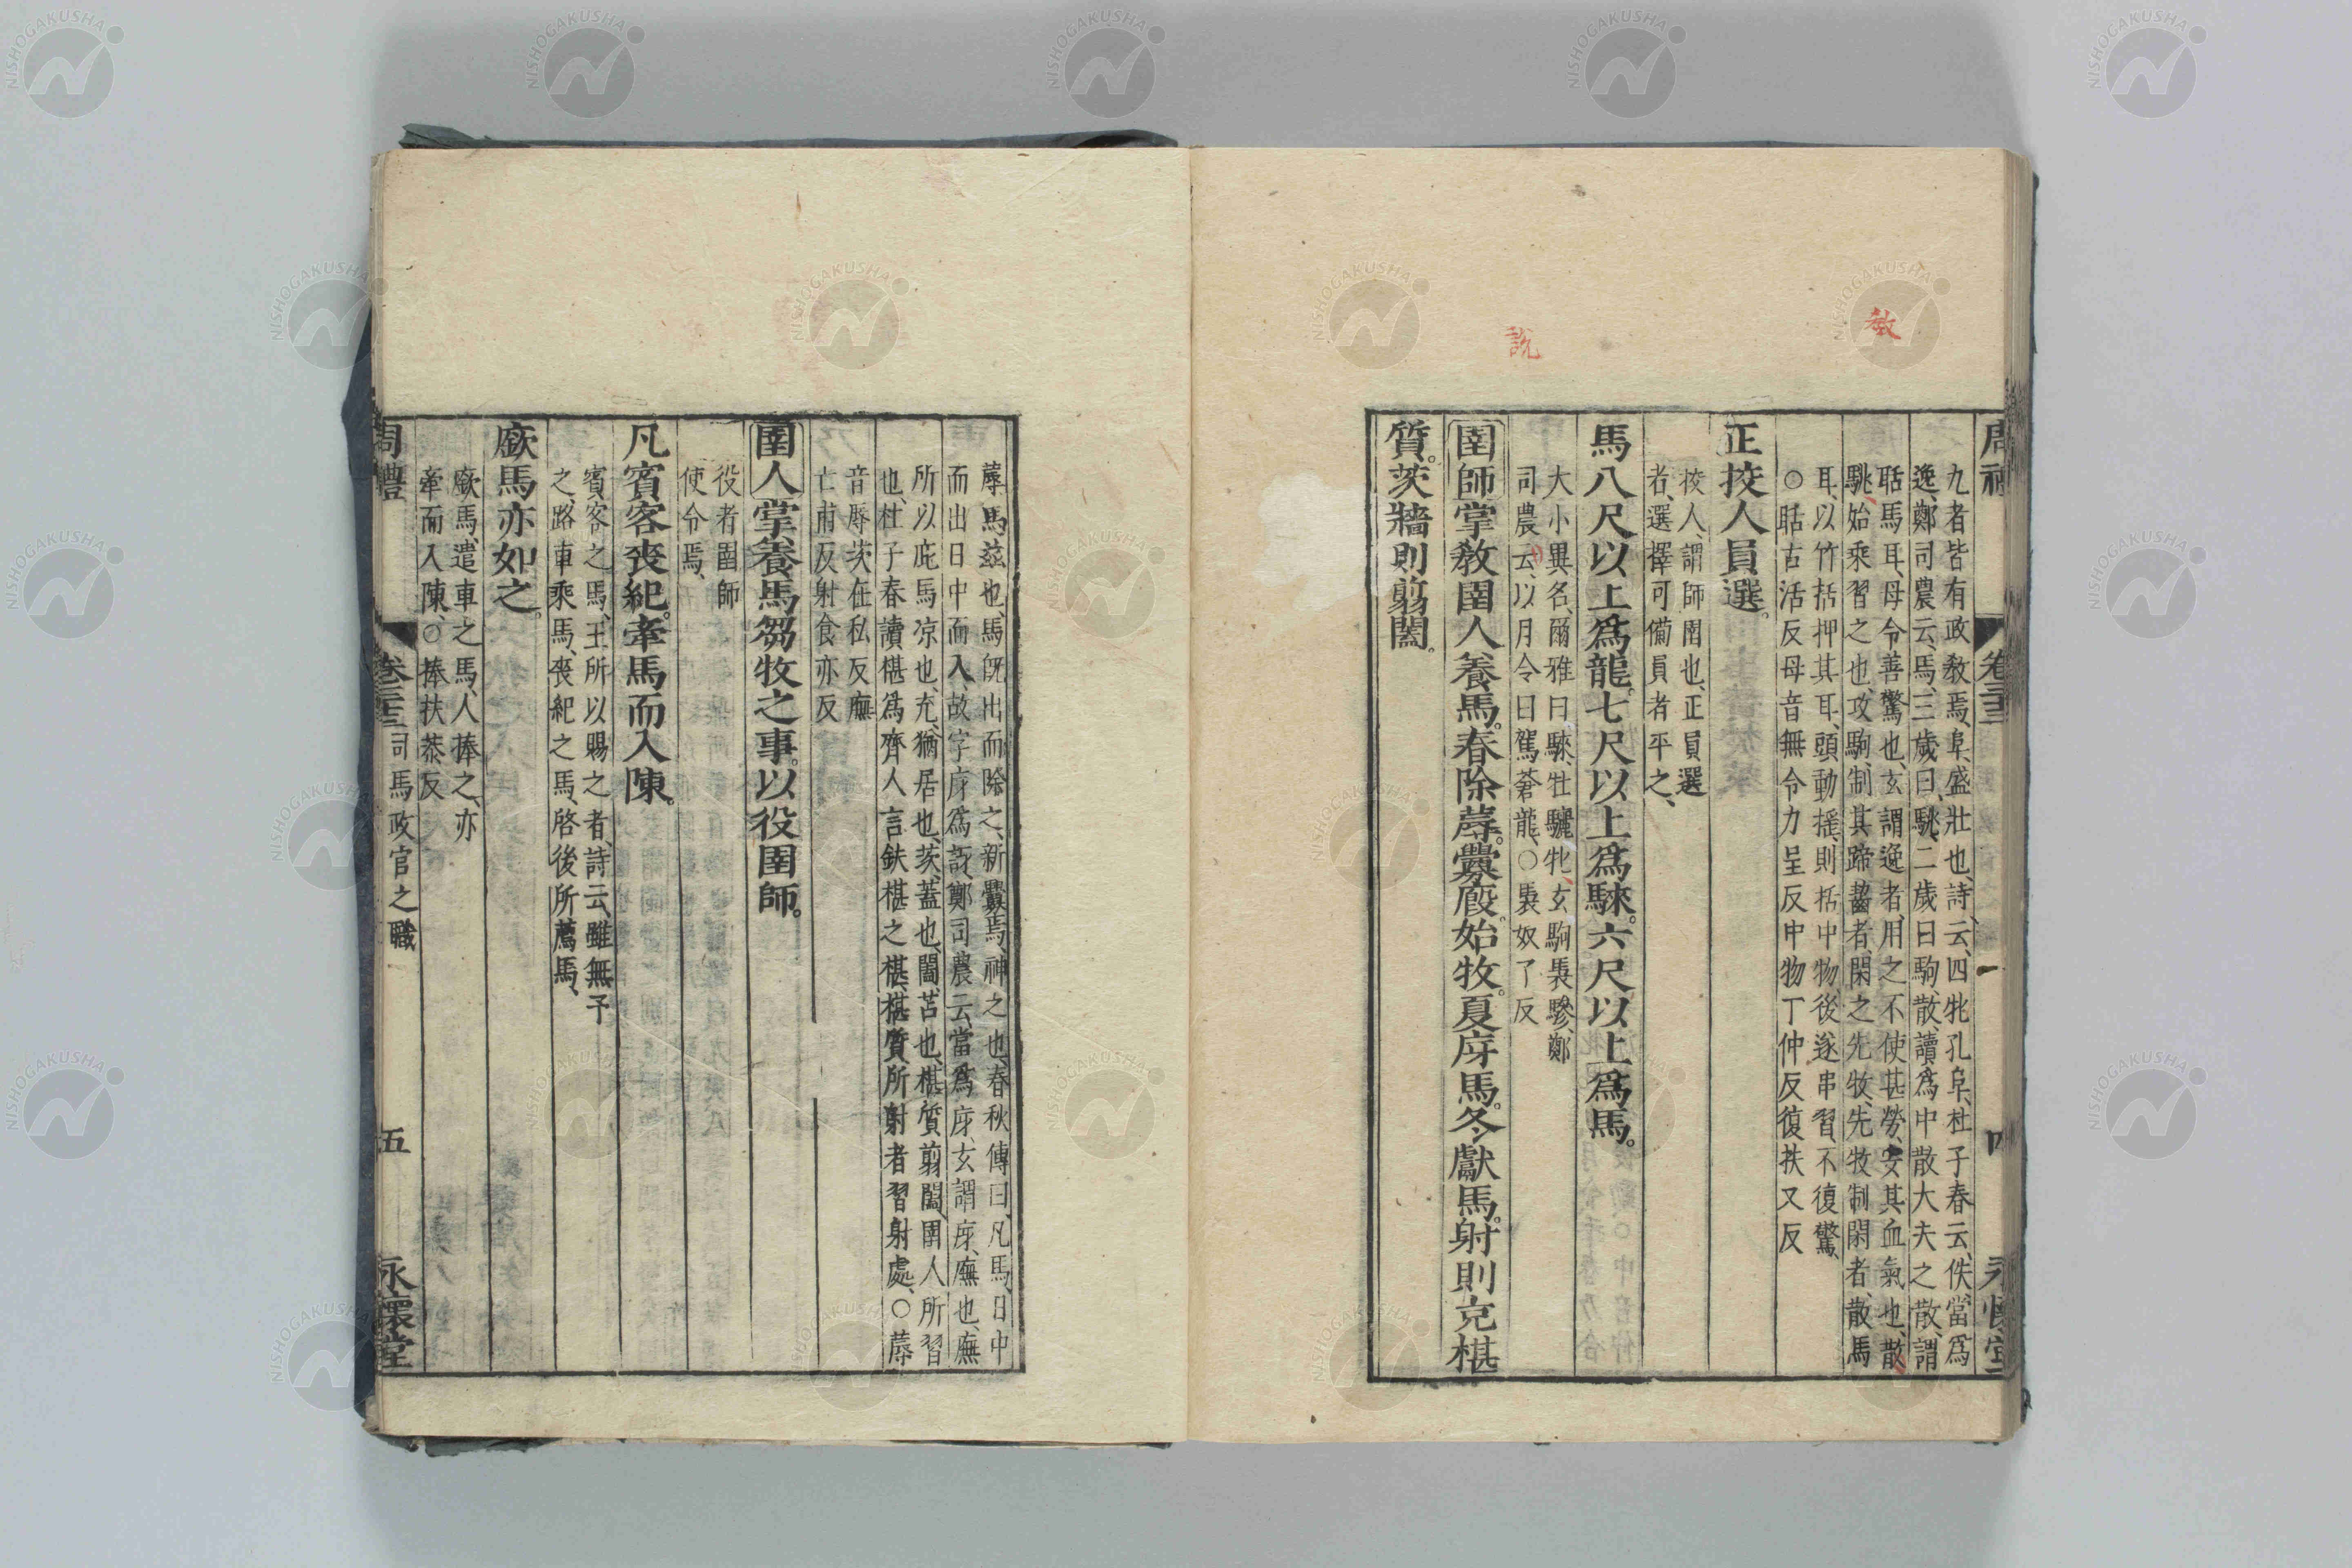 敎
說
周禮 卷三十三 四 永懷堂
九者皆有政敎焉、阜、盛壯也、詩云、四牡孔阜、杜子春云、佚、當爲
逸、鄭司農云、馬、三歲曰駣、二歲曰駒、散、讀爲中散大夫之散、謂
聒馬耳、毋令善驚也、玄謂逸者、用之不使甚勞、安其血氣也、散
駣、始乘習之也、攻駒、制其蹄齧者、閑之先牧、先牧制閑者、散馬
耳、以竹括押其耳、頭動搖、則括中物、後遂串習、不復驚、
○聒古活反毋音無令力呈反中物丁仲反復扶又反
正挍人員選。
挍人、謂師圉也、正員選
者、選擇可備員者平之、
馬八尺以上爲龍。七尺以上爲騋。六尺以上爲馬。
大小異名、爾雅曰、騋、牡驪牝、玄駒褭驂、鄭
司農云、以月令曰駕蒼龍、○褭奴了反
圉師掌敎圉人養馬。春除蓐。釁廄。始牧。夏庌馬。冬獻馬。射則充椹
質。茨牆則剪闔。
蓐、馬茲也、馬旣出而除之、新釁焉、神之也、春秋傳曰、凡馬、日中
而出、日中而入、故字庌爲訝、鄭司農云、當爲庌、玄謂庌、廡也、廡
所以庇馬凉也、充、猶居也、茨、蓋也、闔、苫也、椹質剪闔、圉人所習
也、杜子春讀椹爲齊人言鈇椹之椹、椹質、所射者習射處、○蓐
音辱茨在私反廡
亡甫反射食亦反
圉人掌養馬芻牧之事。以役圉師。
役者圉師
使令焉、
凡賓客喪紀。牽馬而入陳。
賓客之馬、王所以賜之者、詩云、雖無予
之、路車乘馬、喪紀之馬、啓後所薦馬、
廞馬亦如之。
廞馬、遣車之馬、人捧之、亦
牽而入陳、○捧扶恭反
周禮 卷三十三 司馬政官之職 五 永懷堂